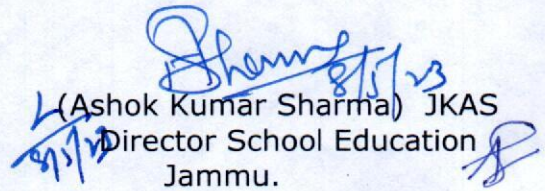 Sharma
8/5/23
(Ashok Kumar Sharma) JKAS
8/5/23 Director School Education
Jammu.